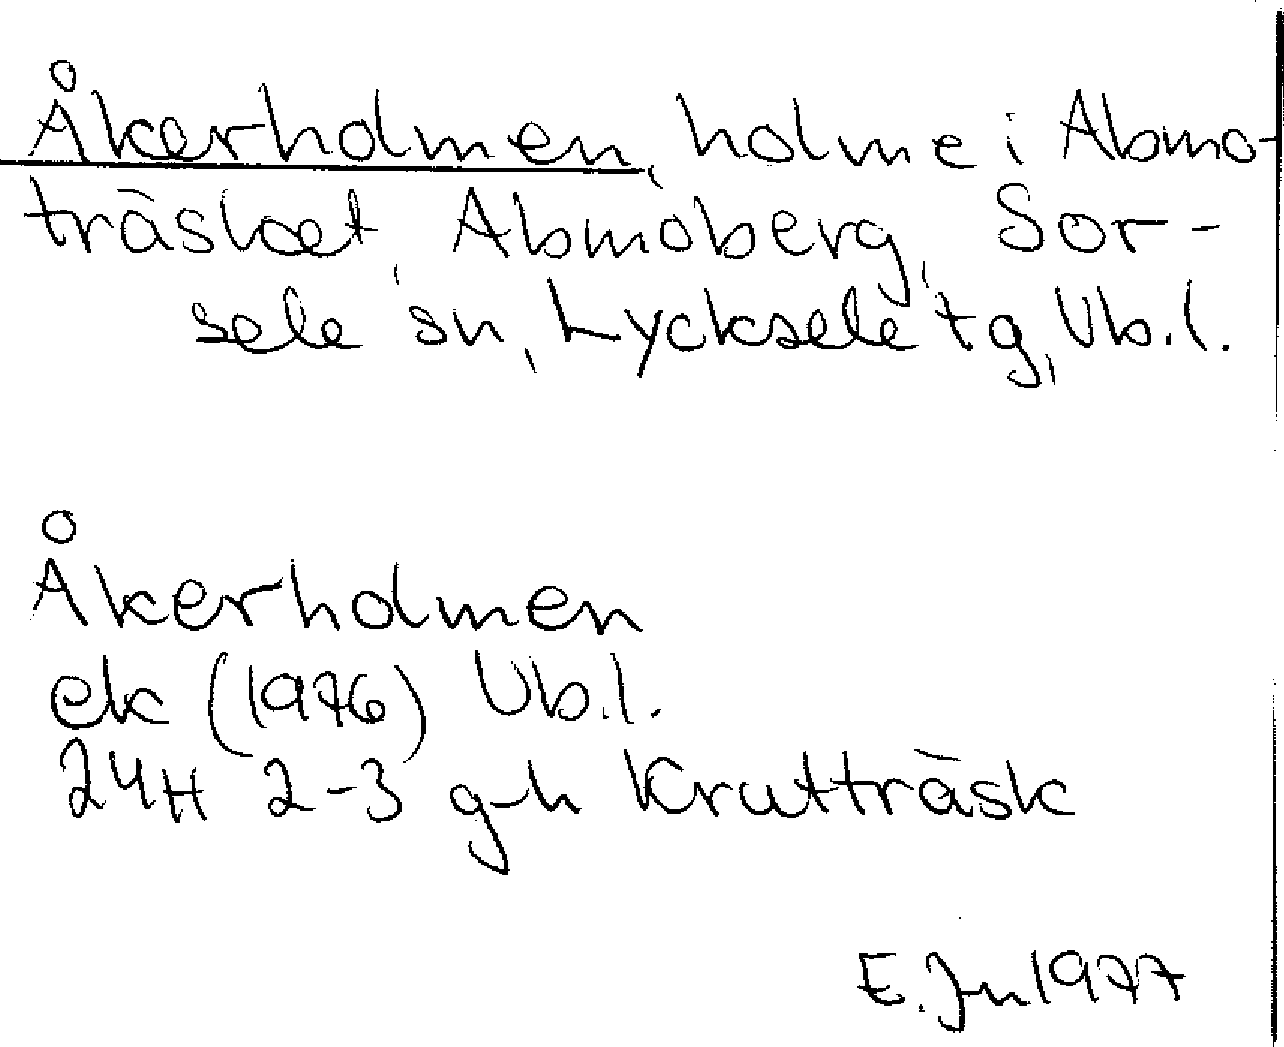 Åkerholmen, holme i Abmo-
träsket, Abmoberg, Sor-
sele sn, Lycksele tg, Vb.l.
Åkerholmen
ek (1976) Vb.l.
24H 2-3 g-h Krutträsk
E. Jn 1977